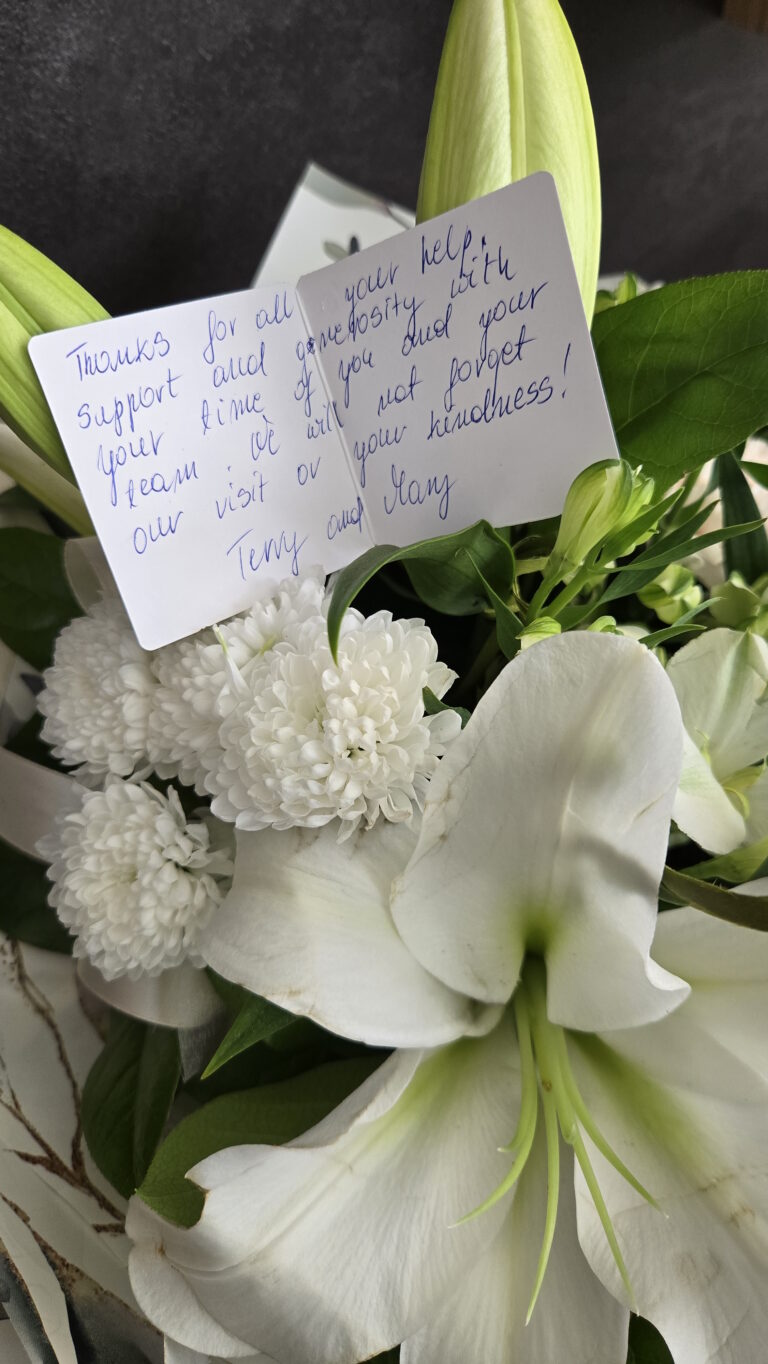 Thanks for all your help,
support and generosity with
your time of you and your
team. We will not forget
our visit or your kindness!
Terry and Mary